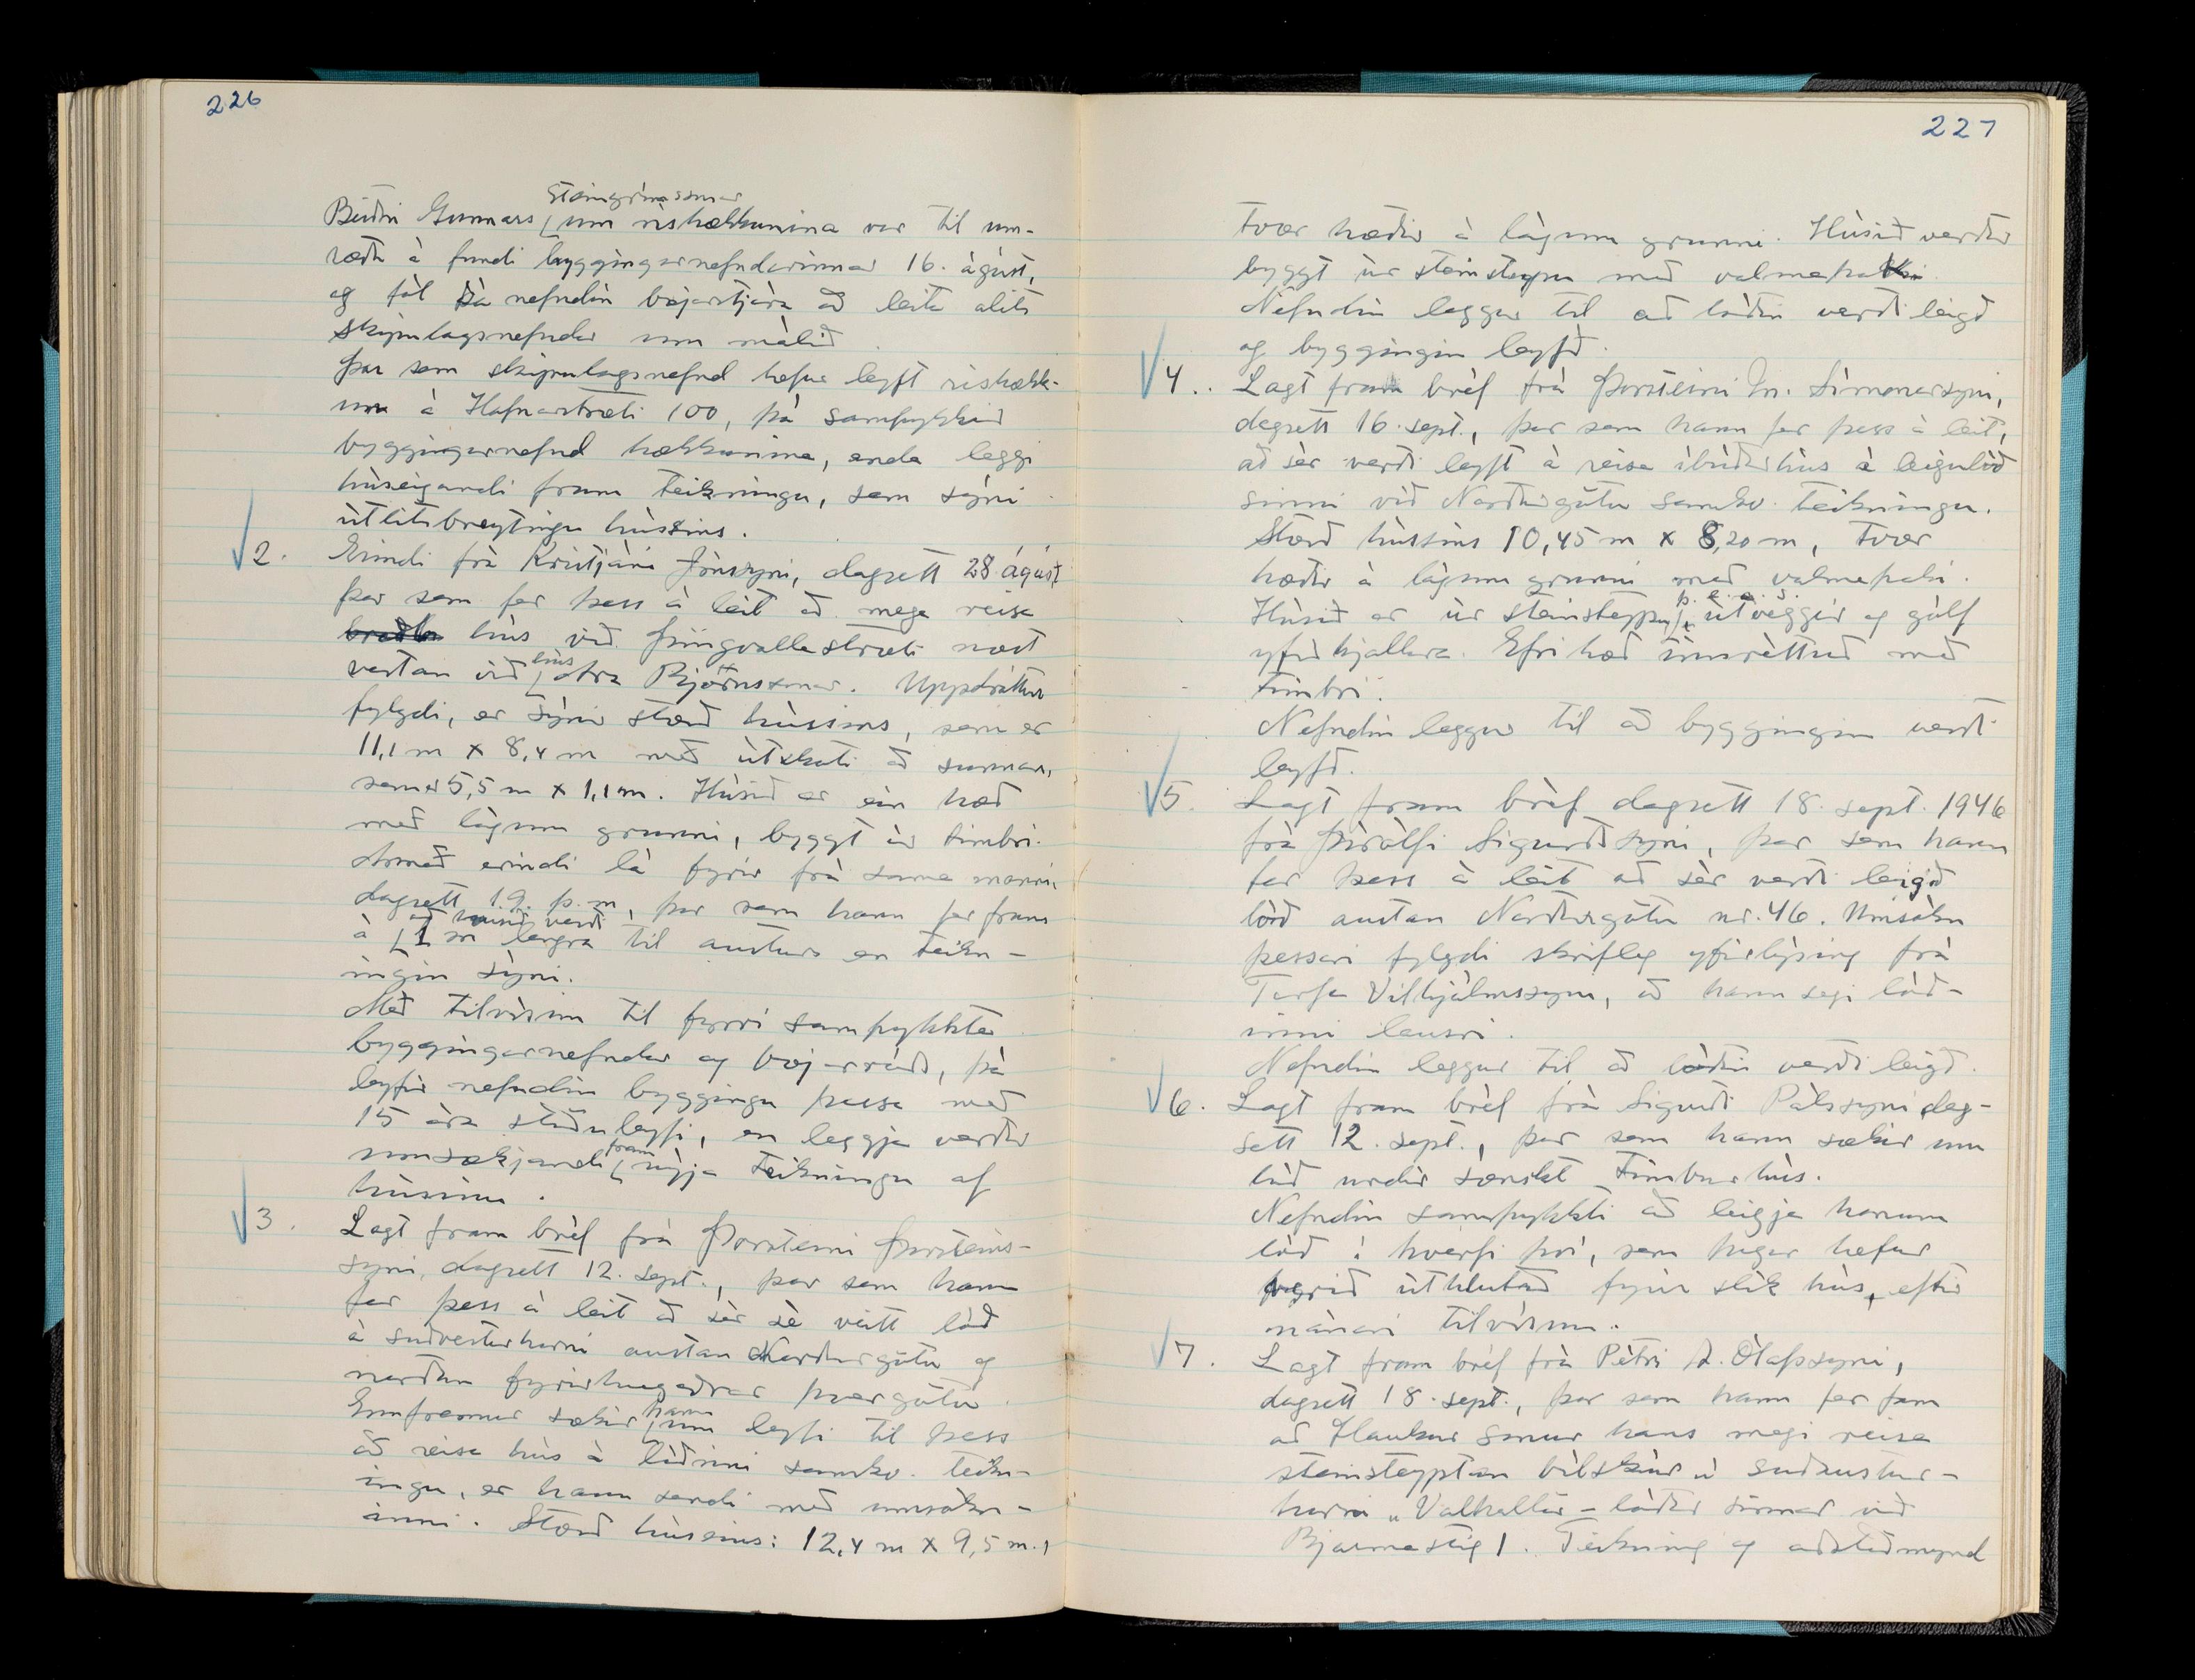 226
Steingrímssonar
Beiðni Gunnars um rishækkunina var til um-
ræðu á fundi byggingarnefndarinnar 16. ágúst,
og fól þá nefndin bæjarstjóra að leita álits
skipulagsnefndar um málið.
Þar sem skipulagsnefnd hefur leyft rishækk-
un á Hafnarstræti 100, þá samþykkir
byggingarnefnd hækkunina, enda leggi
húseigandi fram teikningu, sem sýni
útlitsbreytingu hússins.
2. Erindi frá Kristjáni Jónssyni, dagsett 28. ágúst
þar sem fer þess á leit að mega reisa
hús við Þingvallastræti næst
vestan við hús Björnssonar. Uppdráttur
fylgdi, er sýnir stærð hússins, sem er
11,1 m x 8,4 m með útskoti að sunnan,
sem er 5,5 m x 1,1 m. Húsið er ein hæð
með lágum grunni, byggt úr timbri.
Annað erindi lá fyrir frá sama manni,
dagsett 19. þ.m., þar sem hann fer fram
á að húsið verði 1 m lengra til austurs en teikn-
ingin sýni.
Með tilvísun til fyrri samþykkta
byggingarnefndar og bæjarráðs, þá
leyfir nefndin byggingu þessa með
15 ára stöðuleyfi, en leggja verður
umsækjandi fram nýja teikningu af
húsinu.
3. Lagt fram bréf frá Þorsteini Þorsteins-
syni, dagsett 12. sept., þar sem hann
fer þess á leit að sér sé veitt lóð
á suðvesturhorni austan Norðurgötu og
norðan fyrirhugaðrar þvergötu.
Ennfremur sækir hann um leyfi til þess
að reisa hús á lóðinni samkv. teikn-
ingu, er hann sendi með umsókn-
inni. Stærð hússins: 12,4 m x 9,5 m.,
227
tvær hæðir á lágum grunni. Húsið verður
byggt úr steinsteypu með valmaþaki.
Nefndin leggur til að lóðin verði leigð
og byggingin leyfð.
4. Lagt fram bréf frá Þorsteini M. Símonarsyni,
dagsett 16. sept., þar sem hann fer þess á leit,
að sér verði leyft á reisa íbúðarhús á leigulóð
sinni við Norðurgötu samkv. teikningu.
Stærð hússins 10,45 m x 8,20 m, tvær
hæðir á lágum grunni með valmaþaki.
Húsið er úr steinsteypu, þ. e. a. s. útveggir og gólf
yfir kjallara. Efri hæð innréttuð með
timbri.
Nefndin leggur til að byggingin verði
leyfð.
5. Lagt fram bréf dagsett 18. sept. 1946
frá Þórólfi Sigurðssyni, þar sem hann
fer þess á leit að sér verði leigð
lóð austan Norðurgötu nr. 46. Umsókn
þessari fylgdi skrifleg yfirlýsing frá
Torfa Vilhjálmssyni, að hann segi lóð-
inni lausri.
Nefndin leggur til að lóðin verði leigð.
6. Lagt fram bréf frá Sigurði Pálssyni dag-
sett 12. sept., þar sem hann sækir um
lóð undir sænskt timburhús.
Nefndin samþykkti að leigja honum
lóð í hverfi því, sem þegar hefur
verið úthlutað fyrir slík hús, eftir
nánari tilvísun.
7. Lagt fram bréf frá Pétri A. Ólafssyni,
dagsett 18. sept., þar sem hann fer fram
að Haukur sonur hans megi reisa
steinsteyptan bílskúr á suðaustur-
horni „Valhallar-lóðar sinnar við
Bjarmastíg 1. Teikning og afstöðumynd